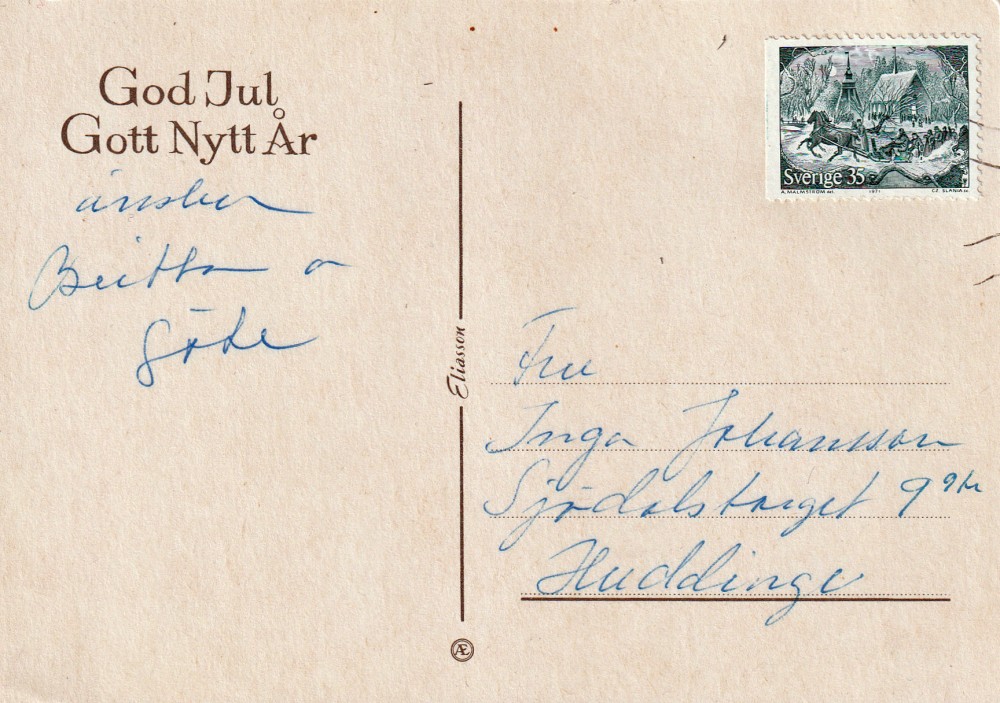 God Jul
Gott Nytt År
önskar
Britta o
Göte
Eliasson
Æ
Sverige 35
A. MALMSTRÖM del. 1971 CZ. SLANIA sc.
Fru
Inga Johansson
Sjödalstorget 9 9tr
Huddinge